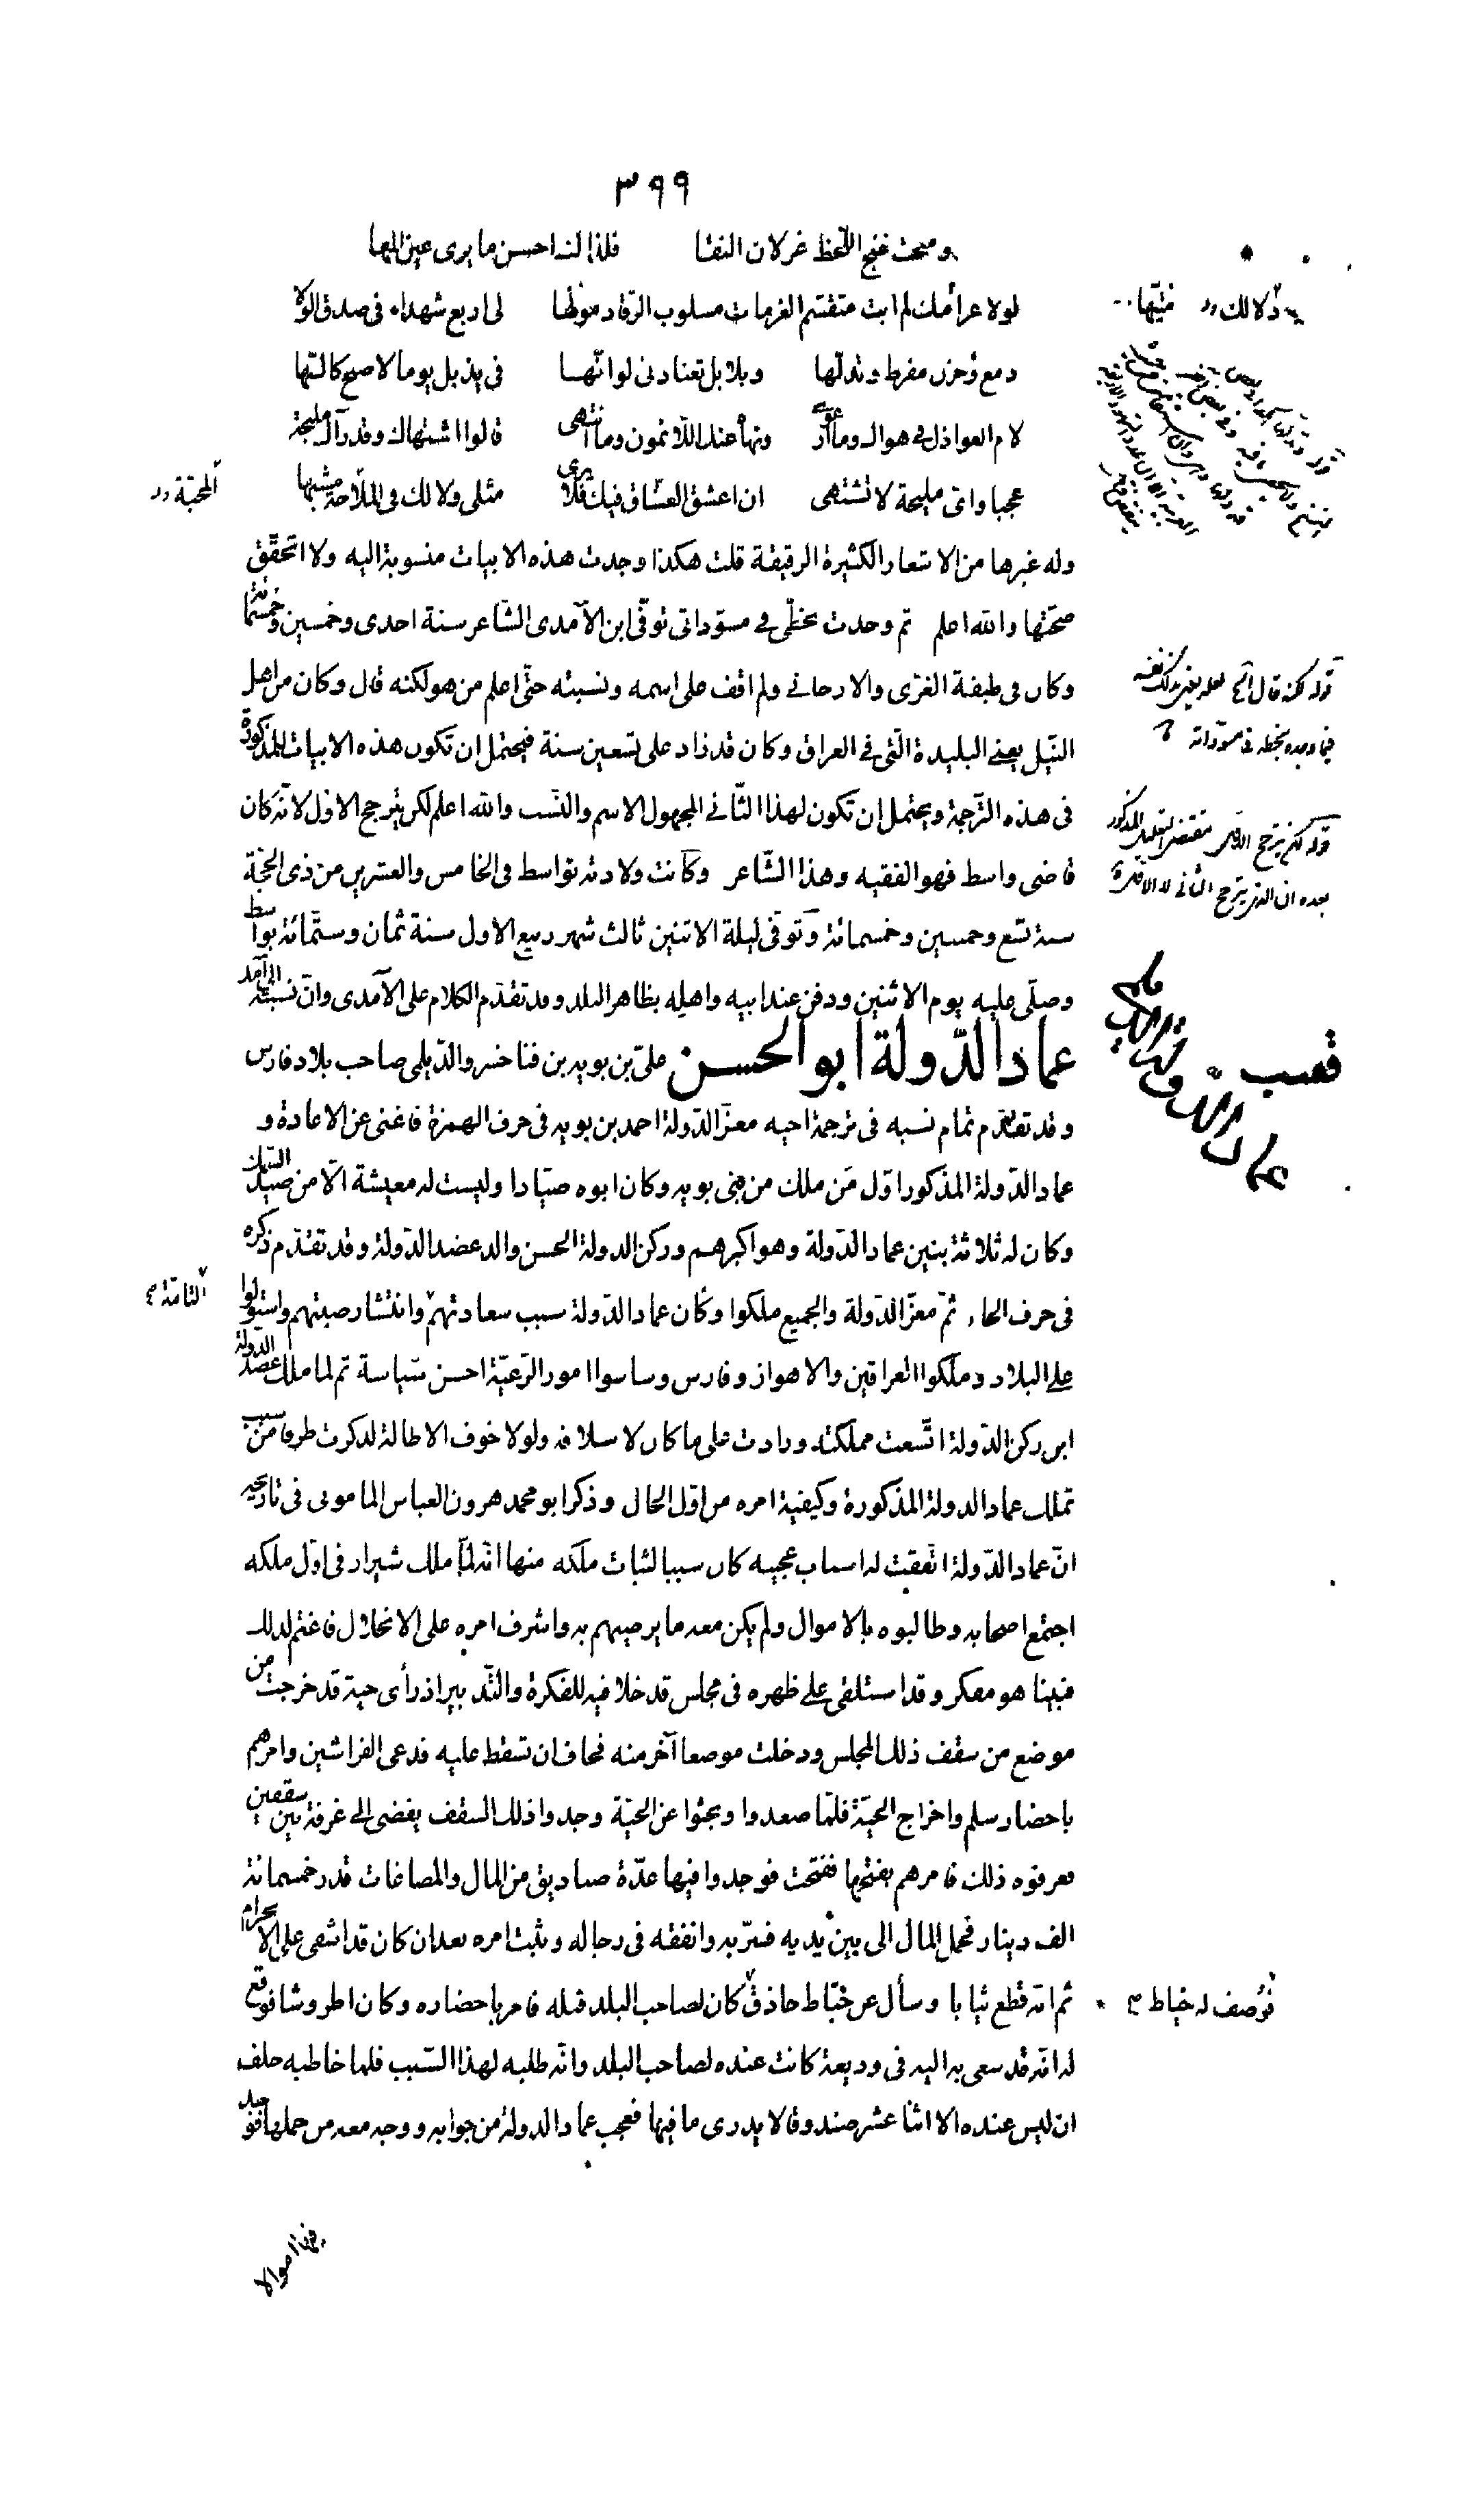 ٣٩٩
ومنحت غنج اللّحظ غزلان النقا فلذالك احسن ما يرى عين المها
لولا عرامك لم ابت متقسّم العزمات مسلوب الرّقاد مولّها لى اربع شهداء فى صدق الولا
دمع وحزن مفرط وتدلّها وبلابل تعتادنى لو انّها فى يذبل يوما لاصبح كالسّها
لام العواذل فى هواك وما ارعوى ونهاه عنك اللّائمون وما انتهى قالوا اشتهاك وقد رآك مليحة
عجبا واىّ مليحة لا تشتهى انا اعشق العشّاق فيك فلا يرى مثلى ولا لك فى الملاحة مشبها
وله غيرها من الاشعار الكثيرة الرقيقة قلت هكذا وجدت هذه الابيات منسوبة اليه ولا اتحقّق
صحّتها والله اعلم ثم وجدت بخطّى فى مسوّداتى توفّى ابن الآمدى الشّاعر سنة احدى وخمسين وخمسمائة
وكان فى طبقة الغزى والارجانى ولم اقف على اسمه ونسبته حتّى اعلم من هو لكنه قال وكان من اهل
النّيل يعنى البليدة الّتى فى العراق وكان قد زاد على تسعين سنة فيحتمل ان تكون هذه الابيات المذكورة
فى هذه التّرجمة ويحتمل ان تكون لهذا الثّانى المجهول الاسم والنّسب والله اعلم لكن يترجح الاوّل لانّه كان
قاضى واسط فهو الفقيه وهذا الشّاعر وكانت ولادته بواسط فى الخامس والعشرين من ذى الحجّة
سنة تسع وخمسين وخمسمائة وتوفّى ليلة الاثنين ثالث شهر ربيع الاول سنة ثمان وستّمائة بواسط
وصلّى عليه يوم الاثنين ودفن عند ابيه واهله بظاهر البلد وقد تقدّم الكلام على الآمدى وانّ نسبته الى آمد
عماد الدّولة ابو الحسن علىّ بن بويه بن فناخسرو الدّيلمى صاحب بلاد فارس
وقد تقدّم تمام نسبه فى ترجمة اخيه معزّ الدّولة احمد بن بويه فى حرف الهمزة فاغنى عن الاعادة و
عماد الدّولة المذكور اوّل من ملك من بنى بويه وكان ابوه صيّادا وليست له معيشة الّا من صيد السّمك
وكان له ثلاثة بنين عماد الدّولة وهو اكبرهم وركن الدولة الحسن والد عضد الدّولة وقد تقدّم ذكره
فى حرف الحاء ثمّ معزّ الدّولة والجميع ملكوا وكان عماد الدّولة سبب سعادتهم وانتشار صيتهم واستولوا
على البلاد وملكوا العراقين والاهواز وفارس وساسوا امور الرّعيّة احسن سياسة ثم لما ملك عضد الدّولة
ابن ركن الدّولة اتّسعت مملكته وزادت على ما كان لاسلافه ولولا خوف الاطالة لذكرت طرفا من سبب
تملك عماد الدولة المذكورة وكيفية امره من اوّل الحال وذكر ابو محمد هرون العباس المامونى فى تاريخه
انّ عماد الدّولة اتّفقت له اسباب عجيبه كان سببا لثبات ملكه منها انّه لمّا ملك شيراز فى اوّل ملكه
اجتمع اصحابه وطالبوه بالاموال ولم يكن معه ما يرضيهم به واشرف امره على الانحلال فاغتم لذلك
فبينا هو مفكر وقد استلقى على ظهره فى مجلس قد خلا فيه للفكرة والتّدبير اذ رأى حية قد خرجت من
موضع من سقف ذلك المجلس ودخلت موضعا آخر منه فخاف ان تسقط عليه فدعى الفراشين وامرهم
باحضار سلم واخراج الحيّة فلمّا صعدوا وبحثوا عن الحيّة وجدوا ذلك السقف يفضى الى غرفة بين سقفين
فعرفوه ذلك فامرهم بفتحها ففتحت فوجدوا فيها عدّة صناديق من المال والمصاغات قدر خمسمائة
الف دينار فحمل المال الى بين يديه فسرّ به وانفقه فى رجاله وثبت امره بعد ان كان قد اشفى على الانخرام
ثم انّه قطع ثيابا وسأل عن خيّاط حاذق كان لصاحب البلد قبله فامر باحضاره وكان اطروشا فوقع
له انّه قد سعى به اليه فى وديعة كانت عنده لصاحب البلد وانّه طلبه لهذا السّبب فلما خاطبه حلف
ان ليس عنده الا اثنا عشر صندوقا لا يدرى ما فيها فعجب عماد الدولة من جوابه ووجه معه من حملها فوجد
فيها اموالا
دلالك
المحبّة
قوله لكنه قال الخ
فيما وجده بخطه فى مسوّداته
قوله لكن يترجح الاوّل مقتضى التعليل المذكور
بعده ان الذى يترجح الثانى لا الاوّل
قصب
عماد الدّولة
التامّة
فوُصف له خياط